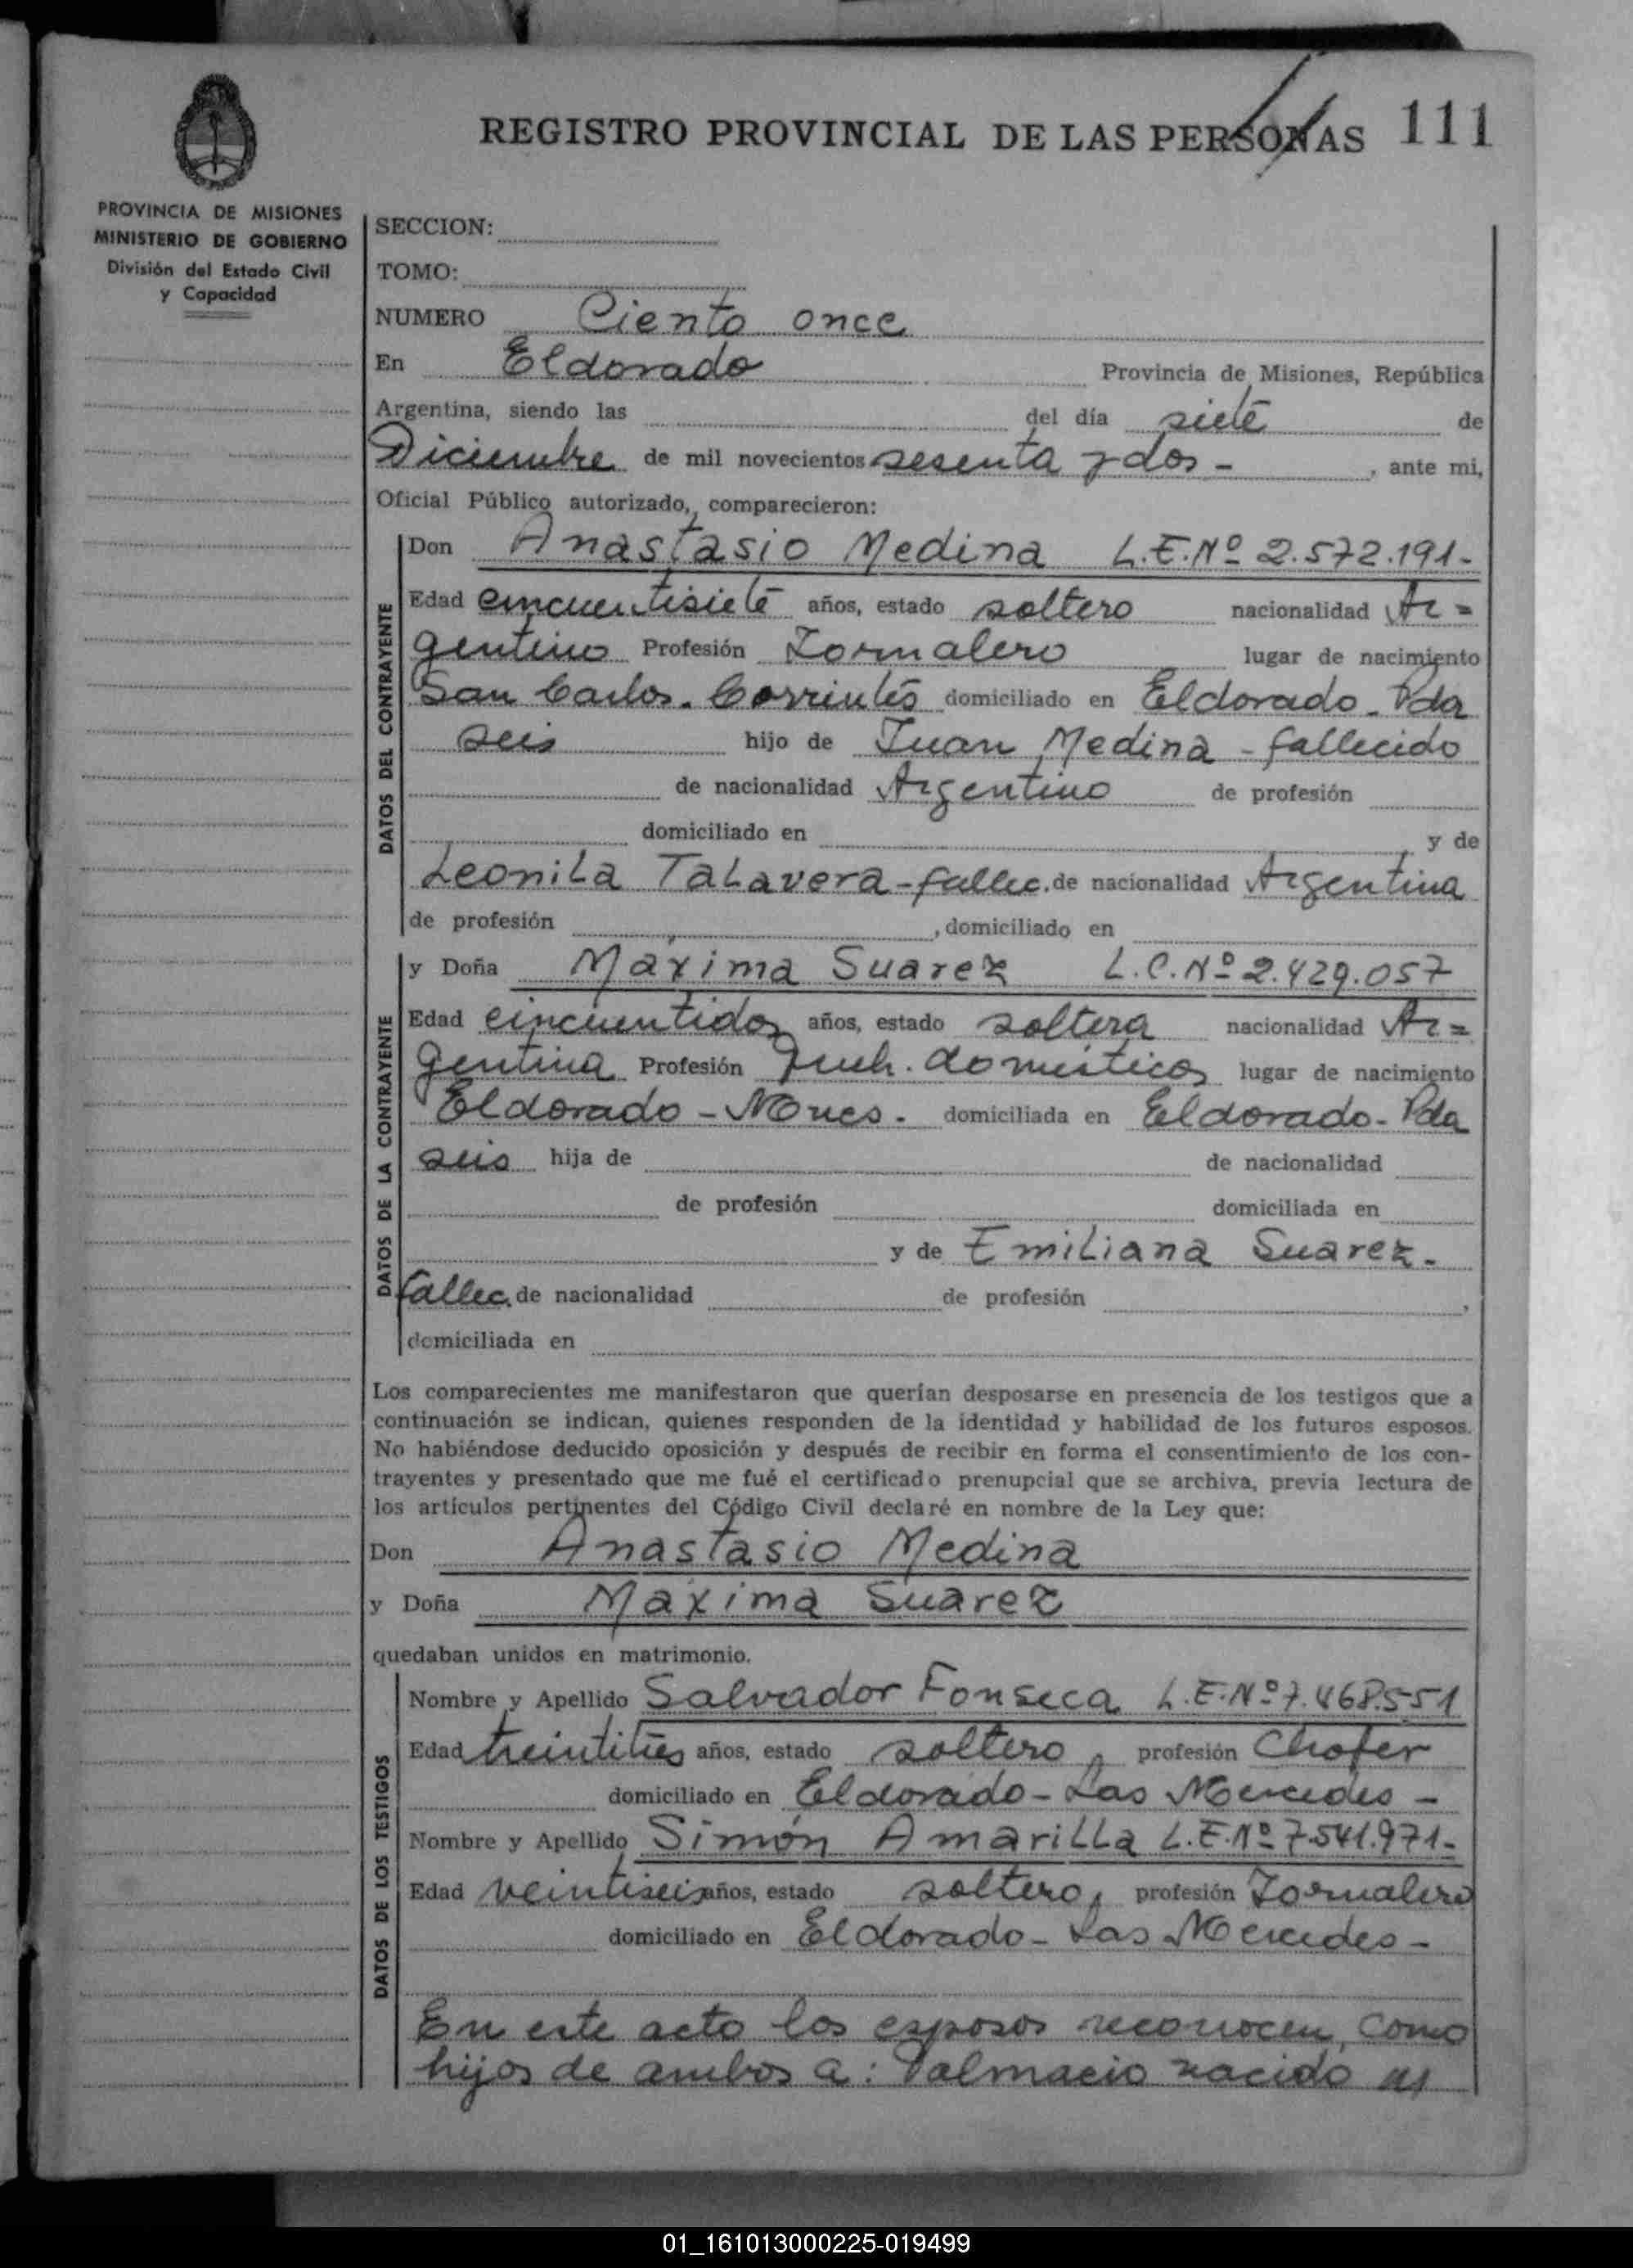 REGISTRO PROVINCIAL DE LAS PERSONAS 111
PROVINCIA DE MISIONES
MINISTERIO DE GOBIERNO
División del Estado Civil
y Capacidad
SECCION:
TOMO:
NUMERO Ciento once
En Eldorado Provincia de Misiones, República
Argentina, siendo las del día siete de
Diciembre de mil novecientos sesenta y dos - , ante mi,
Oficial Público autorizado, comparecieron:
DATOS DEL CONTRAYENTE
Don Anastasio Medina L.E.Nº 2.572.191-
Edad cincuentisiete años, estado soltero nacionalidad Ar=
gentino Profesión Jornalero lugar de nacimiento
San Carlos. Corrientes domiciliado en Eldorado - Pda
seis hijo de Juan Medina - fallecido
de nacionalidad Argentino de profesión
domiciliado en y de
Leonila Talavera - fallec. de nacionalidad Argentina
de profesión , domiciliado en
DATOS DE LA CONTRAYENTE
y Doña Maxima Suarez L.C.Nº 2.429.057
Edad cincuentidos años, estado soltera nacionalidad Ar=
gentina Profesión Queh. domésticos lugar de nacimiento
Eldorado - Mnes. domiciliada en Eldorado - Pda
seis hija de de nacionalidad
de profesión domiciliada en
y de Emiliana Suarez -
fallec. de nacionalidad de profesión ,
domiciliada en
Los comparecientes me manifestaron que querían desposarse en presencia de los testigos que a
continuación se indican, quienes responden de la identidad y habilidad de los futuros esposos.
No habiéndose deducido oposición y después de recibir en forma el consentimiento de los con-
trayentes y presentado que me fué el certificado prenupcial que se archiva, previa lectura de
los artículos pertinentes del Código Civil declaré en nombre de la Ley que:
Don Anastasio Medina
y Doña Maxima Suarez
quedaban unidos en matrimonio.
DATOS DE LOS TESTIGOS
Nombre y Apellido Salvador Fonseca L.E.Nº 7.468.551
Edad treintitres años, estado soltero, profesión Chofer
domiciliado en Eldorado - Las Mercedes -
Nombre y Apellido Simón Amarilla L.E.Nº 7.541.971-
Edad veintiseis años, estado soltero, profesión Jornalero
domiciliado en Eldorado - Las Mercedes -
En este acto los esposos reconocen, como
hijos de ambos a: Dalmacio nacido en
01_161013000225-019499